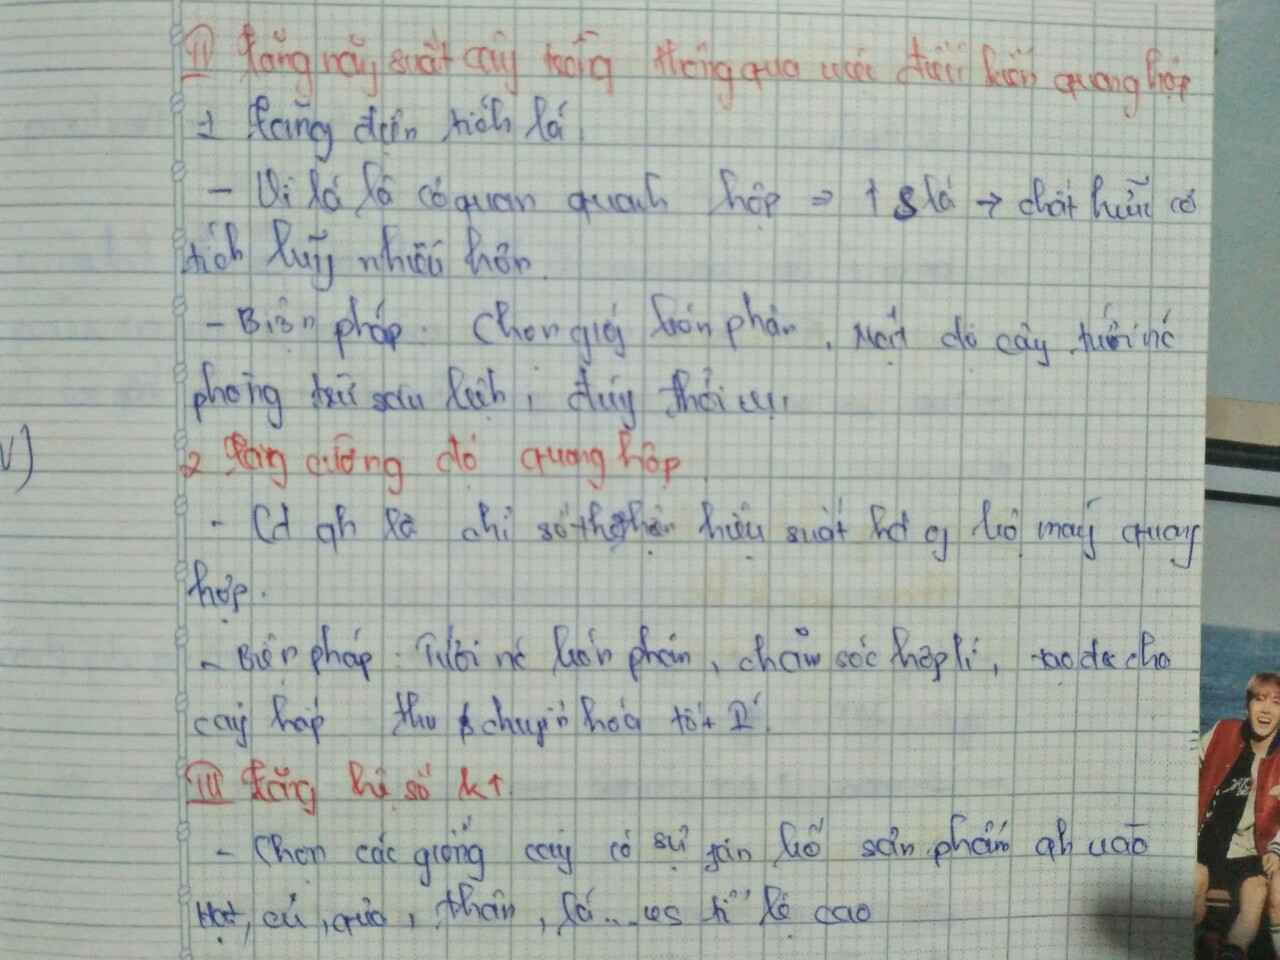 II Tăng năng suất cây trồng thông qua việc điều khiển quang hợp
1 Tăng diện tích lá
- Vì lá là cơ quan quanh hợp => ↑ S lá → chất hữu cơ
tích luỹ nhiều hơn
- Biện pháp: Chọn giống bón phân, mật độ cây, tưới nc
phòng trừ sâu bệnh, đúng thời vụ
V)
2 Tăng cường độ quang hợp
- Cđ qh là chỉ số thể hiện hiệu suất hđ of bộ máy quang
hợp.
- Biện pháp: Tưới nc bón phân, chăm sóc hợp lí, tạo đk cho
cây hấp thu & chuyển hoá tốt
III Tăng hệ số kt
- Chọn các giống cây có sự phân bố sản phẩm qh vào
Hạt, củ, quả, thân, lá... tỉ lệ cao